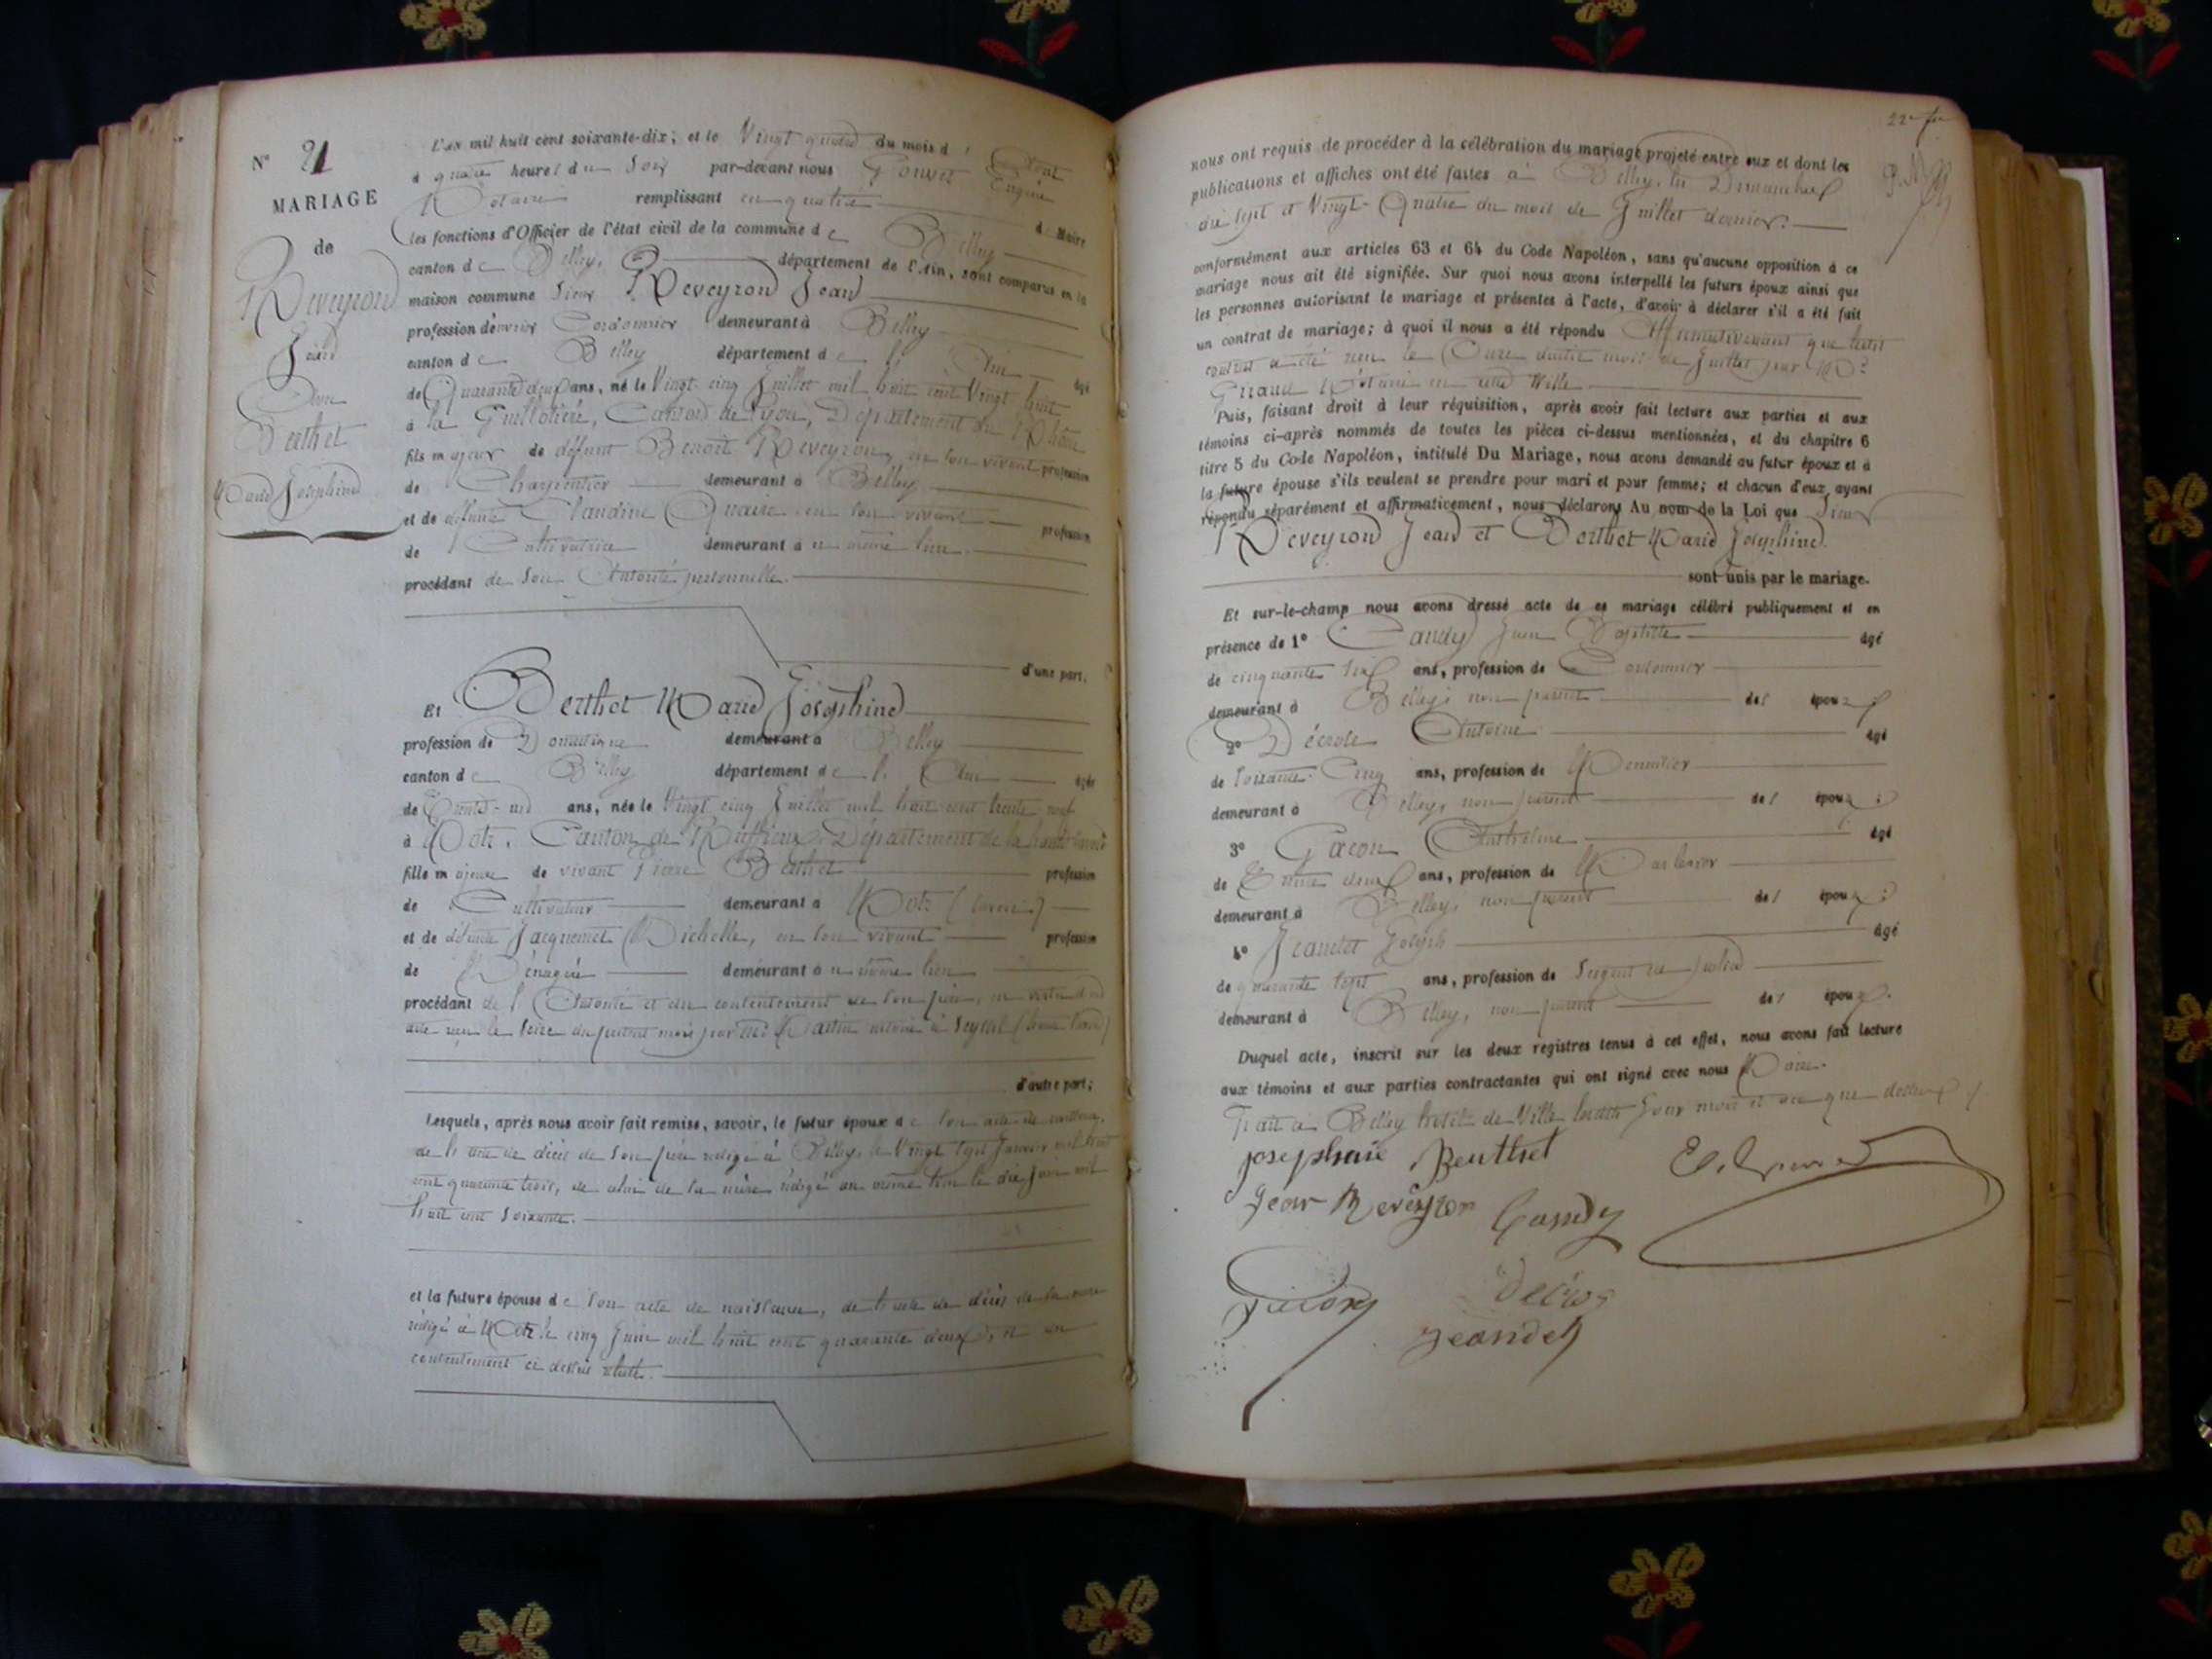 N° 21
MARIAGE
de
Reveyrond
Jean
Avec
Berthet
Marie Joséphine
L'an mil huit cent soixante-dix; et le Vingt quatre du mois d'Août
à quatre heures du Soir par-devant nous Eugène
Notaire remplissant en qualité de Maire
les fonctions d'Officier de l'état civil de la commune de Belley
canton de Belley, département de l'Ain, sont comparus en la
maison commune Sieur Reveyrond Jean
profession d'ouvrier Cordonnier demeurant à Belley
canton de Belley département de l'Ain âgé
de Quarante deux ans, né le Vingt cinq Juillet mil huit cent Vingt huit
à la Guillotière, Canton de Lyon, Département du Rhône
fils majeur de défunt Benoît Reveyron, en son vivant profession
de Charpentier demeurant à Belley
et de défunte Claudine en son vivant profession
de Cultivatrice demeurant à u même lieu.
procédant de Son Autorité personnelle.
d'une part.
Et Berthet Marie Joséphine
profession de Domestique demeurant à Belley
canton de Belley département de l'Ain âgée
de Trente-un ans, née le Vingt cinq Juillet mil huit cent trente neuf
à Motz, Canton de Ruffieux, Département de la
fille majeure de vivant Pierre Berthet profession
de Cultivateur demeurant à Motz (Savoie)
et de défunte Jacquemet Michelle, en son vivant profession
de Ménagère demeurant à u même lieu
procédant de l'Autorité et du consentement de son père, en vertu d'un
acte reçu le Seize du présent mois par Me Martin notaire à Seyssel
d'autre part;
Lesquels, après nous avoir fait remise, savoir, le futur époux de son acte de naissance,
de l'acte de décès de Son père rédigé à Belley, le Vingt Sept Janvier mil huit
cent quarante trois, de celui de la mère rédigé au même lieu le dix Juin mil
huit cent Soixante.
et la future épouse de Son acte de naissance, de l'acte de décès de sa mère
rédigé à Motz le cinq Juin mil huit cent quarante deux, et du
consentement ci dessus relaté.
nous ont requis de procéder à la célébration du mariage projeté entre eux et dont les
publications et affiches ont été faites à Belley, les Dimanches
dix sept et Vingt-Quatre du mois de Juillet dernier.
conformément aux articles 63 et 64 du Code Napoléon, sans qu'aucune opposition à ce
mariage nous ait été signifiée. Sur quoi nous avons interpellé les futurs époux ainsi que
les personnes autorisant le mariage et présentes à l'acte, d'avoir à déclarer s'il a été fait
un contrat de mariage; à quoi il nous a été répondu Affirmativement que ledit
contrat a été reçu le Onze dudit mois de Juillet par Me
Giraud Notaire en cette Ville
Puis, faisant droit à leur réquisition, après avoir fait lecture aux parties et aux
témoins ci-après nommés de toutes les pièces ci-dessus mentionnées, et du chapitre 6
titre 5 du Code Napoléon, intitulé Du Mariage, nous avons demandé au futur époux et à
la future épouse s'ils veulent se prendre pour mari et pour femme; et chacun d'eux ayant
répondu séparément et affirmativement, nous déclarons Au nom de la Loi que Sieur
Reveyrond Jean et Berthet Marie Joséphine.
sont unis par le mariage.
Et sur-le-champ nous avons dressé acte de ce mariage célébré publiquement et en
présence de 1° Candy Jean Baptiste âgé
de cinquante six ans, profession de Cordonnier
demeurant à Belley, non parent des époux;
2° Décrole Antoine âgé
de soixante-Cinq ans, profession de Menuisier
demeurant à Belley, non parent des époux;
3° Gacon Anthelme âgé
de Trente deux ans, profession de Marbrier
demeurant à Belley, non parent des époux;
4° Jeandet Joseph âgé
de quarante sept ans, profession de Sergent de police
demeurant à Belley, non parent des époux.
Duquel acte, inscrit sur les deux registres tenus à cet effet, nous avons fait lecture
aux témoins et aux parties contractantes qui ont signé avec nous Maire.
Fait à Belley hôtel de Ville lesdits Jour mois et an que dessus
josephine Berthet
Jean Reveyron Candy
Gacon
Jeandet